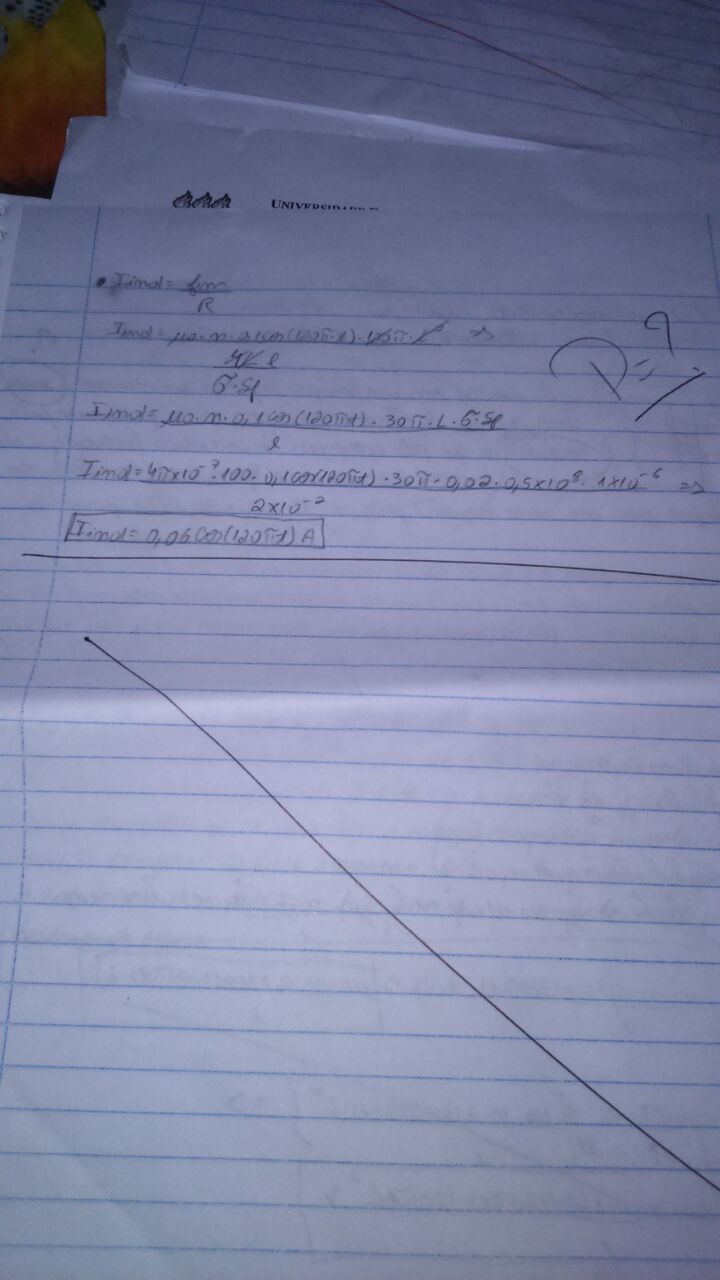 UNIVERSIDADE F
• Iind = fem
R
Iind = μ0·n·0,1cos(120π·t)·120π·L² =>
4L l
σ·Sf
Iind = μ0·n·0,1cos(120πt)·30π·L·σ·Sf
l
Iind = 4π×10⁻⁷·100·0,1cos(120πt)·30π·0,02·0,5×10⁸·1×10⁻⁶ =>
2×10⁻²
Iind = 0,06cos(120πt) A